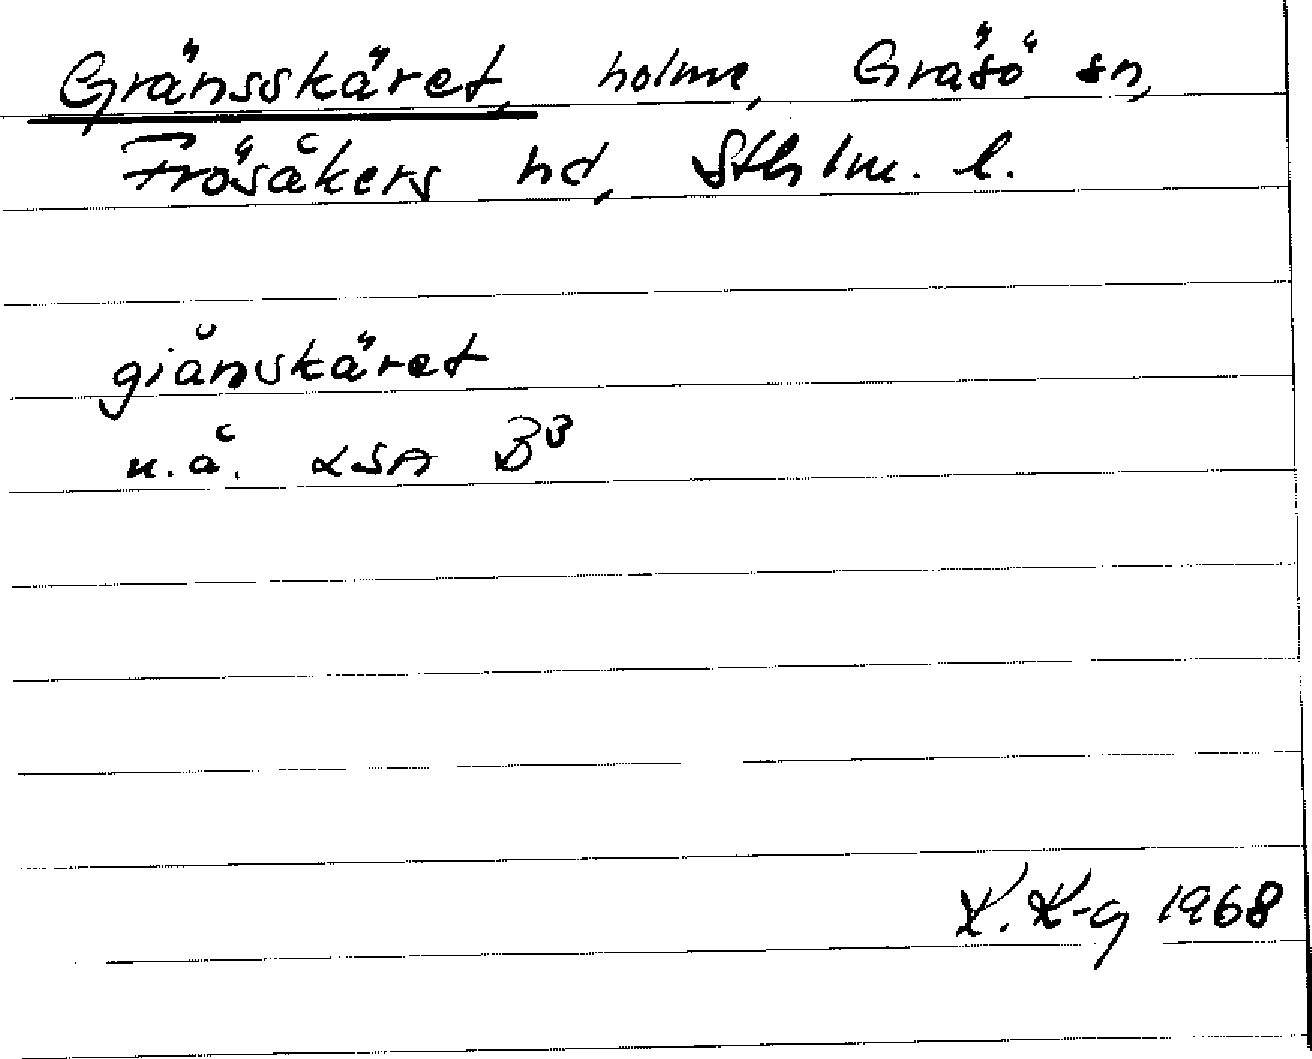 Gränsskäret, holme, Gräsö sn,
Frösåkers hd, Sthlm. l.
giånskäret
u.å. LSA B³
K. K-g 1968